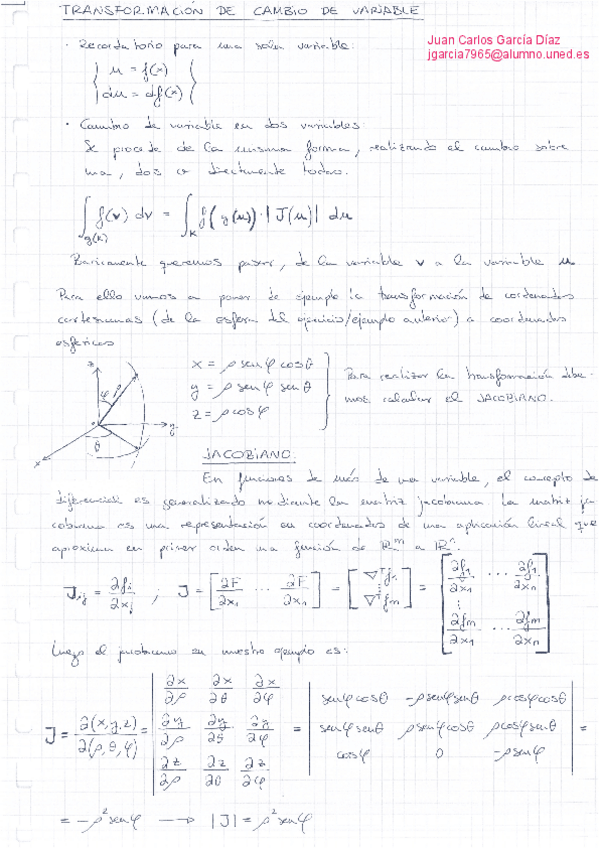 TRANSFORMACIÓN DE CAMBIO DE VARIABLE
Juan Carlos García Díaz
jgarcia7965@alumno.uned.es
· Recordatorio para una sola variable:
{ u = f(x)
du = df(x) }
· Cambio de variable en dos variables:
Se procede de la misma forma, realizando el cambio sobre
una, dos o directamente todas.
∫_{g(K)} f(v) dv = ∫_K f(g(u)) · |J(u)| du
Basicamente queremos pasar, de la variable v a la variable u.
Para ello vamos a poner de ejemplo la transformación de coordenadas
cartesianas (de la esfera del ejercicio/ejemplo anterior) a coordenadas
esféricas
z
φ ρ
y
θ
x
x = ρ senφ cosθ
y = ρ senφ senθ
z = ρ cosφ
Para realizar la transformación debe-
mos calcular el JACOBIANO.
JACOBIANO:
En funciones de más de una variable, el concepto de
diferencial es generalizado mediante la matriz jacobiana. La matriz ja-
cobiana es una representación en coordenadas de una aplicación lineal que
aproxima en primer orden una función de ℝᵐ a ℝⁿ.
J_ij = ∂f_i/∂x_j ; J = [∂F/∂x₁ ··· ∂F/∂x_n] = [∇ᵀf₁ ⋮ ∇ᵀf_m] = [∂f₁/∂x₁ ··· ∂f₁/∂x_n ⋮ ∂f_m/∂x₁ ··· ∂f_m/∂x_n]
Luego el jacobiano en nuestro ejemplo es:
J = ∂(x,y,z)/∂(ρ,θ,φ) = | ∂x/∂ρ ∂x/∂θ ∂x/∂φ | = | senφcosθ -ρsenφsenθ ρcosφcosθ |
| ∂y/∂ρ ∂y/∂θ ∂y/∂φ | | senφsenθ ρsenφcosθ ρcosφsenθ | =
| ∂z/∂ρ ∂z/∂θ ∂z/∂φ | | cosφ 0 -ρsenφ |
= -ρ²senφ → |J| = ρ²senφ